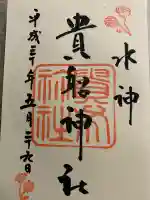 水神
貴船神社
平成三十年五月二十九日